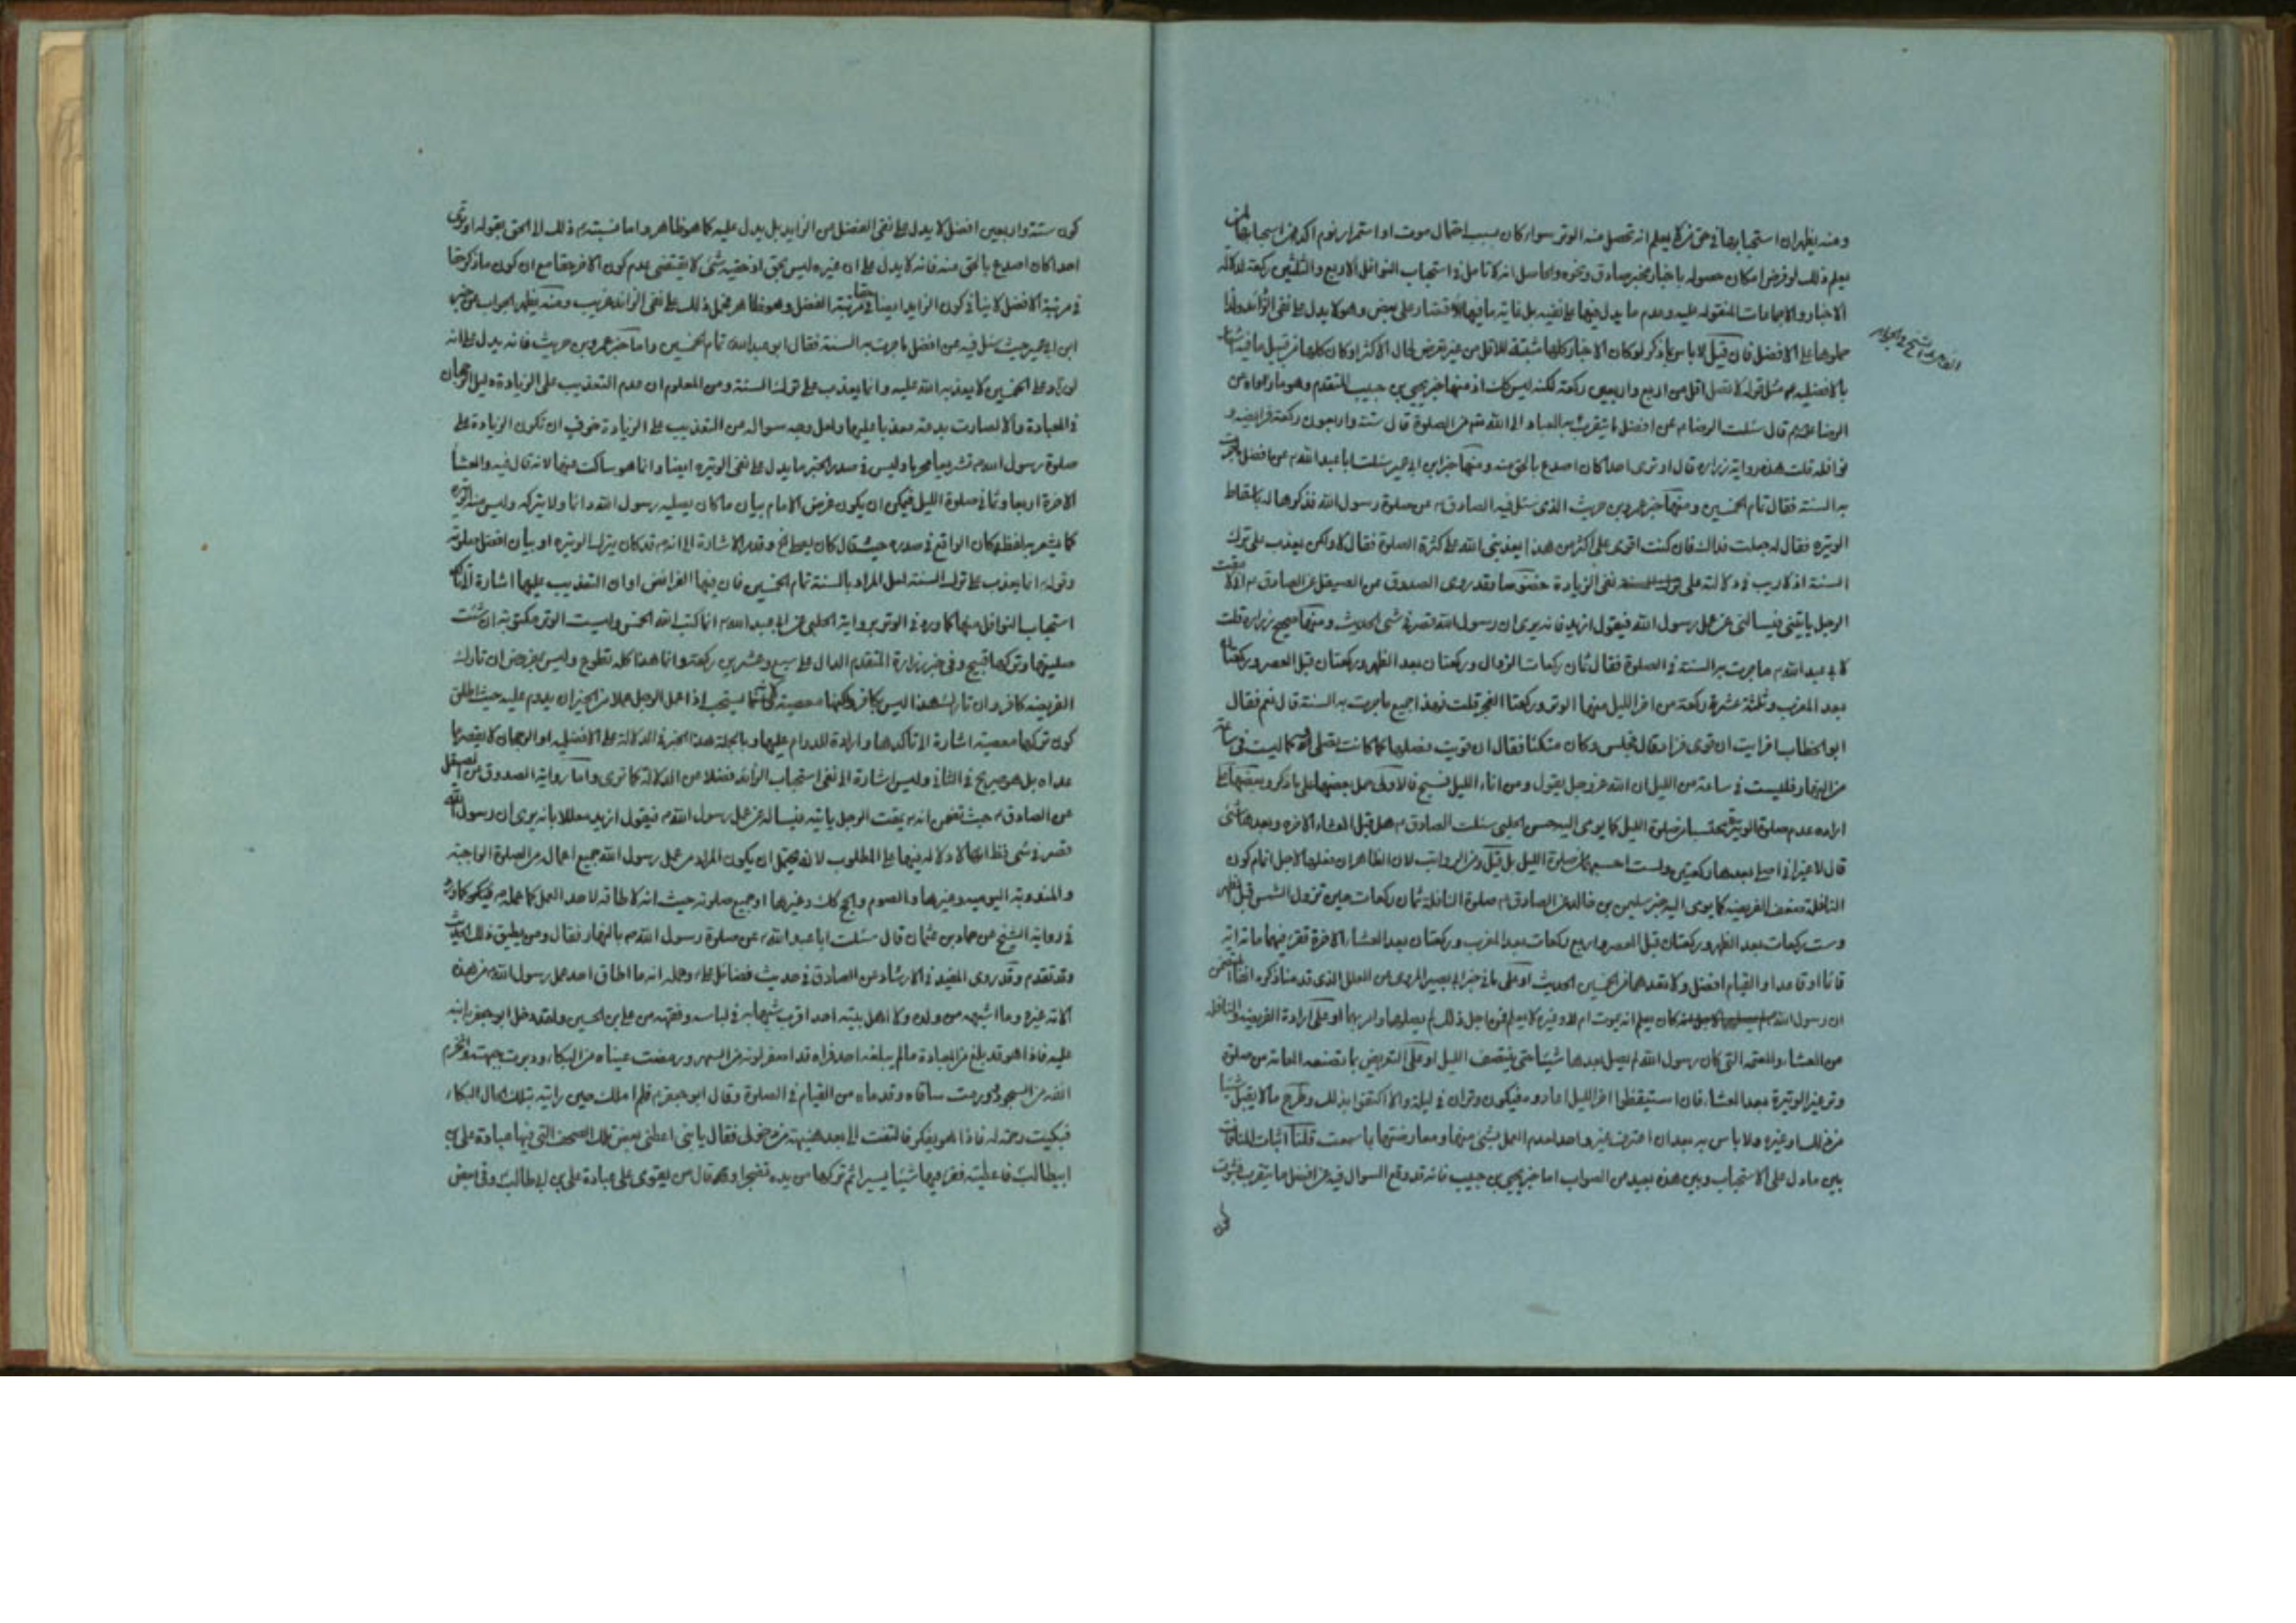 ومنه يظهر ان استحبابها في حق من لا يعلم انه تحصل منه الوتر سواء كان بسبب احتمال موت او استمرار نوم اكد من استحبابها لمن
يعلم ذلك لو فرض امكان حصوله باخبار مخبر صادق ونحوه والحاصل انه لا تامل في استحباب النوافل الاربع والثلثين ركعة لدلالة
الاخبار والاجماعات المنقولة عليه وعدم ما يدل فيها على نفيه بل غاية ما فيها الاقتصار على بعض وهو لا يدل على نفي الزائد ولذا
حملوها على الافضل فان قيل لا باس بما ذكر لو كان الاخبار كلها مثبتة للاقل من غير تعرض لحال الاكثر او كان كلها من قبيل ما فيه
بالافضلية مثل قوله لا تصل اقل من اربع واربعين ركعة لكنه ليس كك اذ منها خبر يحيى بن حبيب المتقدم وهو ما رواه عن
الرضا قال سئلت الرضا عن افضل ما يتقرب به العباد الى الله من الصلوة قال ستة واربعون ركعة فرايضه و
نوافله قلت هذه رواية زرارة قال اوترى احدا كان اصدع بالحق منه ومنها خبر ابن ابي عمير سئلت ابا عبد الله عن افضل ما جرت
به السنة فقال تمام الخمسين ومنها خبر عمرو بن حريث الذي سئل فيه الصادق عن صلوة رسول الله فذكرها له باسقاط
الوتيرة فقال له جعلت فداك فان كنت اقوى على اكثر من هذا يعذبني الله على كثرة الصلوة فقال لا ولكن يعذب على ترك
السنة اذ لا ريب في دلالته على نفي الزيادة خصوصا وقد روى الصدوق عن الصيقل عن الصادق اني لامقت
الرجل ياتيني فيسالني عن عمل رسول الله فيقول ازيد فانه يرى ان رسول الله قصر في شئ الحديث ومنها صحيح زرارة قلت
لابي عبد الله ما جرت به السنة في الصلوة فقال ثمان ركعات الزوال وركعتان بعد الظهر وركعتان قبل العصر وركعتان
بعد المغرب وثلثة عشرة ركعة من اخر الليل منها الوتر وركعتا الفجر قلت فهذا جميع ما جرت به السنة قال نعم فقال
ابو الخطاب افرايت ان قوى فزاد قال فجلس وكان متكئا فقال ان قويت فصلها كما كانت تصلى وكما ليست في ساعة
من النهار فليست في ساعة من الليل ان الله عز وجل يقول ومن اناء الليل فسبح فالاولى حمل بعضها على ما ذكر وبعضها على
ارادة عدم صلوة الوتيرة بحتساب صلوة الليل كما يومى اليه حسن الحلبي سئلت الصادق هل قبل العشاء الاخرة وبعدها شئ
قال لا غير اني اصلي بعدها ركعتين ولست احسبهما من صلوة الليل بل قيل ومن الرواتب لان الظاهر ان فعلها لاجل اتمام كون
النافلة ضعف الفريضة كما يومى اليه خبر سليمن بن خالد عن الصادق صلوة النافلة ثمان ركعات حين تزول الشمس قبل الظهر
وست ركعات بعد الظهر وركعتان قبل العصر واربع ركعات بعد المغرب وركعتان بعد العشاء الاخرة تقرء فيهما مائة اية
قائما او قاعدا والقيام افضل ولا تعدهما من الخمسين الحديث او على ما في خبر ابي بصير المروى من العلل الذي قدمنا ذكره انفا المتضمن
ان رسول الله كان يعلم انه يموت ام لا وغيره لا يعلم فمن اجل ذلك لم يصلهما وامر بهما او على ارادة الفريضة والنافلة
من العشاء والعتمة التي كان رسول الله لم يصل بعدها شيئا حتى ينتصف الليل او على التعريض بما تصنعه العامة من صلوة
وتر غير الوتيرة بعد العشاء فان استيقظوا اخر الليل اعادوه فيكون وتران في ليلة والا اكتفوا بذلك وطرح ما لا يقبل شيئا
من ذلك وغيره ولا باس به بعد ان اعترف غير واحد بعدم العمل بشئ منها ومعارضتها بما سمعت قلنا اثبات المنافات
بين ما دل على الاستحباب وبين هذه بعيد من الصواب اما خبر يحيى بن حبيب فانه قد وقع السوال فيه عن افضل ما يتقرب فثبوت
كون ستة واربعين افضل لا يدل على نفي الفضل من الزايد بل يدل عليه كما هو ظاهر واما نسبته ذلك الى الحق بقوله اوترى
احدا كان اصدع بالحق منه فانه لا يدل على ان غيره ليس بحق اذ حقية شئ لا يقتضي عدم كون الاخر حقا مع ان كون ما ذكر حقا
في مرتبة الافضل لا ينافي كون الزايد ايضا حقا في مرتبة الفضل وهو ظاهر فحمل ذلك على نفي الزائد غريب ومنه يظهر الجواب عن خبر
ابن ابي عمير حيث سئل فيه عن افضل ما جرت به السنة فقال ابو عبد الله تمام الخمسين واما خبر عمرو بن حريث فانه يدل على انه
لو زاد على الخمسين لا يعذبه الله عليه وانما يعذب على ترك السنة ومن المعلوم ان عدم التعذيب على الزيادة دليل الرجحان
في العبادة والا لصارت بدعة معذبا عليها ولعل وجه سواله من التعذيب على الزيادة خوف ان تكون الزيادة على
صلوة رسول الله تشريعا محرما وليس في صدر الخبر ما يدل على نفي الوتيرة ايضا وانما هو ساكت عنها لانه قال فيه والعشاء
الاخرة اربعا وثمانى صلوة الليل فيمكن ان يكون غرض الامام بيان ما كان يصليه رسول الله دائما ولا يتركه وليس منه الوتيرة
كما يشعر به لفظة كان الواقع في صدره حيث قال كان يصلي الخ وقصد الاشارة الى انه قد كان يترك الوتيرة او بيان افضل صلوته
وقوله انما يعذب على ترك السنة لعل المراد بالسنة تمام الخمسين فان فيها الفرائض او ان التعذيب عليها اشارة الى تاكد
استحباب النوافل منها كما ورد في الوتر برواية الحلبي عن ابي عبد الله انما كتب الله الخمس وليست الوتر مكتوبة ان شئت
صليتها وتركها قبيح وفي خبر زرارة المتقدم الدال على سبع وعشرين ركعة وانما هذا كله تطوع وليس بمفروض ان تارك
الفريضة كافر وان تارك هذا ليس بكافر ولكنها معصية لانه يستحب اذا عمل الرجل عملا من الخير ان يدوم عليه حيث اطلق
كون تركها معصية اشارة الى تاكدها وارادة الدوام عليها وبالجملة هذا الخبر في الدلالة على الافضلية او الرجحان لا يقصر عما
عداه بل هو صريح في الثاني وليس اشارة الى نفي استحباب الزائد فضلا من الدلالة كما ترى واما رواية الصدوق عن الصيقل
عن الصادق حيث تضمن انه يمقت الرجل ياتيه فيساله عن عمل رسول الله فيقول ازيد معللا بانه يرى ان رسول الله
قصر في شئ فظ انها لا دلالة فيها على المطلوب لانه يحتمل ان يكون المراد من عمل رسول الله جميع اعماله من الصلوة الواجبة
والمندوبة اليومية وغيرها والصوم والحج كك وغيرها او جميع صلوته حيث انه لا طاقة لاحد العمل كما عمله فيكون كما ورد
في رواية الشيخ عن حماد بن عثمان قال سئلت ابا عبد الله عن صلوة رسول الله بالنهار فقال ومن يطيق ذلك الحديث
وقد تقدم وقد روى المفيد في الارشاد عن الصادق في حديث فضائل على وعمله انه ما اطاق احد عمل رسول الله من هذه
الامة غيره وما اشبهه من ولده ولا اهل بيته احد اقرب شبها به في لباسه وفقهه من على بن الحسين ولقد دخل ابو جعفر ابنه
عليه فاذا هو قد بلغ من العبادة ما لم يبلغه احد فراه قد اصفر لونه من السهر ورمضت عيناه من البكاء ودبرت جبهته وانخرم
انفه من السجود وورمت ساقاه وقدماه من القيام في الصلوة وقال ابو جعفر فلم املك حين رايته بتلك الحال البكاء
فبكيت رحمة له فاذا هو يفكر فالتفت الى بعد هنيهة من دخولى فقال يا بني اعطني بعض تلك الصحف التي فيها عبادة على بن
ابيطالب فاعطيته فقرء فيها شيئا يسيرا ثم تركها من يده تضجرا وقال من يقوى على عبادة على بن ابي طالب وفي بعض